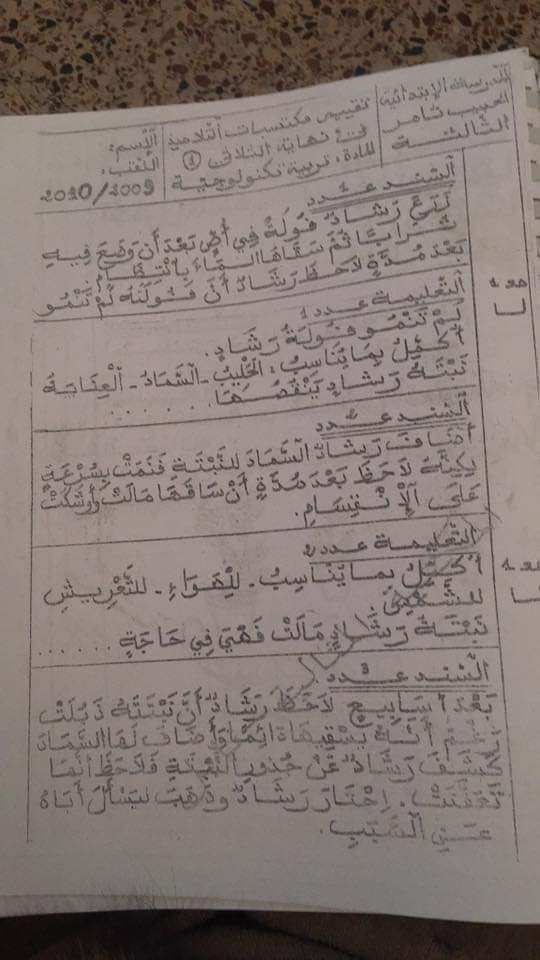 المدرسة الإبتدائية
الحبيب ثامر
الثالثة
تقييم مكتسبات التلاميذ
في نهاية الثلاثي 1
المادة: تربية تكنولوجية
الإسم:
اللقب:
2010/2009
السند عدد 1
زَرَعَ رَشَادٌ فُولَةً فِي أُصٍّ بَعْدَ أَنْ وَضَعَ فِيهِ
تُرَابًا ثُمَّ سَقَاهَا المَاءَ بِانْتِظَامٍ
بَعْدَ مُدَّةٍ لَاحَظَ رَشَادٌ أَنَّ فُولَتَهُ لَمْ تَنْمُو
التعليمة عدد 1
لَمْ تَنْمُو فُولَةُ رَشَادٍ.
أُكْمِلُ بِمَا يُنَاسِبُ: الحَلِيبُ - السَّمَادُ - العِنَايَةُ
نَبْتَةُ رَشَادٍ يَنْقُصُهَا . . . . . .
مع 1
السند عدد 2
أَضَافَ رَشَادٌ السَّمَادَ لِلنَّبْتَةِ فَنَمَتْ بِسُرْعَةٍ
لَكِنَّهُ لَاحَظَ بَعْدَ مُدَّةٍ أَنَّ سَاقَهَا مَالَتْ وَأَوْشَكَتْ
عَلَى الْإِنْقِسَامِ.
التعليمة عدد 2
أُكْمِلُ بِمَا يُنَاسِبُ - لِلْهَوَاءِ - لِلتَّعْرِيشِ
لِلشَّمْسِ
نَبْتَةُ رَشَادٍ مَالَتْ فَهْيَ فِي حَاجَةٍ . . . . . .
مع 1
السند عدد 3
بَعْدَ أَسَابِيعٍ لَاحَظَ رَشَادٌ أَنَّ نَبْتَتَهُ ذَبُلَتْ
رَغْمَ أَنَّهُ يَسْقِيهَا دَائِمًا وَأَضَافَ لَهَا السَّمَادَ
كَشَفَ رَشَادٌ عَنْ جُذُورِ النَّبْتَةِ فَلَاحَظَ أَنَّهَا
تَعَفَّنَتْ. اِحْتَارَ رَشَادٌ وَذَهَبَ لِيَسْأَلَ أَبَاهُ
عَنِ السَّبَبِ.